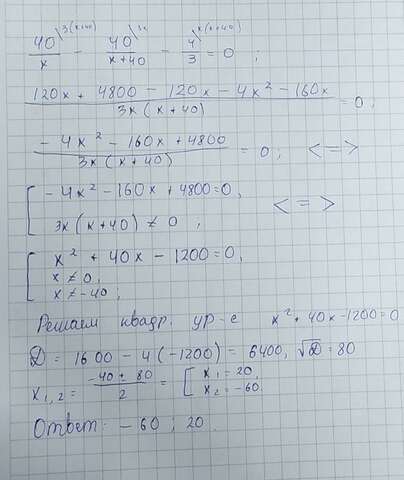 40/x \3(x+40) - 40/(x+40) \3x - 4/3 \x(x+40) = 0 ;
(120x + 4800 - 120x - 4x² - 160x)/(3x(x+40)) = 0 ;
(-4x² - 160x + 4800)/(3x(x+40)) = 0 ; <=>
[ -4x² - 160x + 4800 = 0,
3x(x+40) ≠ 0 , <=>
[ x² + 40x - 1200 = 0,
x ≠ 0,
x ≠ -40 ;
Решаем квадр. ур-е x² + 40x - 1200 = 0
D = 1600 - 4(-1200) = 6400, √D = 80
x₁,₂ = (-40 ± 80)/2 = [ x₁ = 20,
x₂ = -60.
Ответ: -60 ; 20.